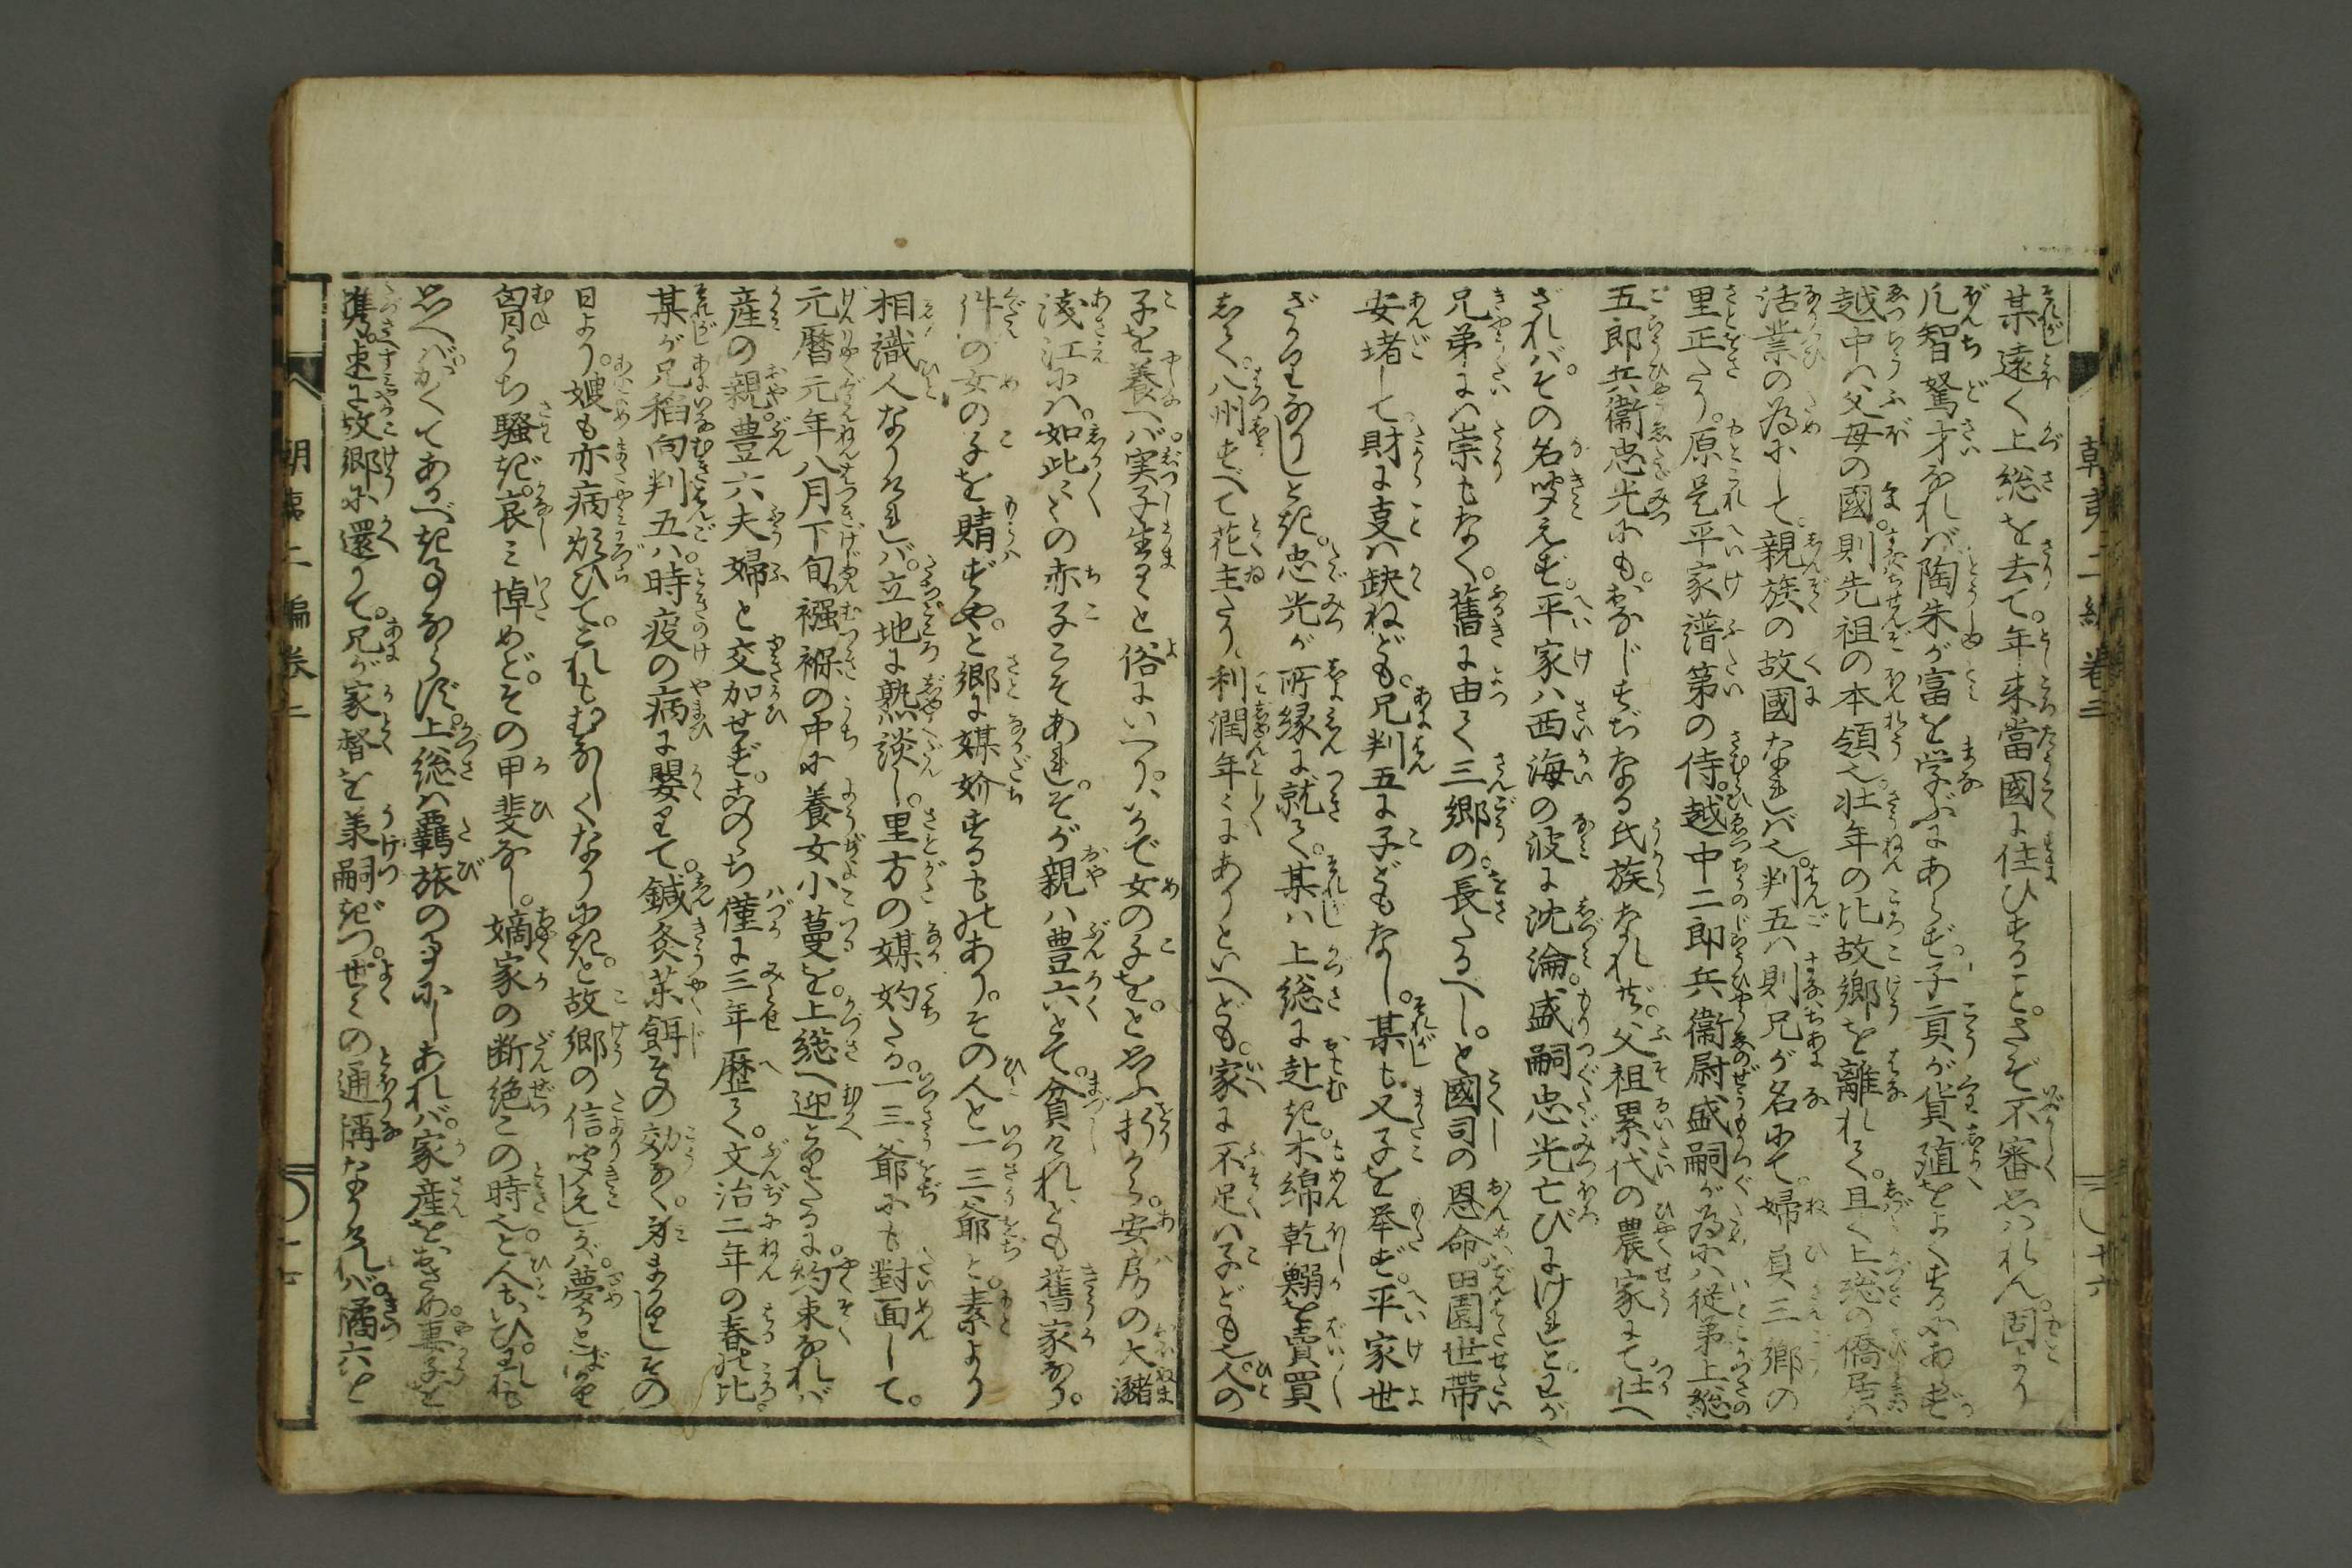 朝夷二編巻三
十六
某遠く上総を去て。年来當國に住ひすること。さぞ不審思はれん。固より
凡智駑才なれば陶朱が富を学ぶにあらず。子貢が貨殖をよくするにあらず
越中は父母の國。則先祖の本領也。壮年の比故郷を離れて。且く上総の僑居は
活業の為にして。親族の故國なればなり。判五は則兄が名にて。婦負三郷の
里正たり。原是平家譜第の侍。越中二郎兵衞尉盛嗣が為には従弟上総
五郎兵衞忠光にも。おなじすぢなる氏族なれど。父祖累代の農家にて仕へ
ざれば。その名聞えず。平家は西海の波に沈淪。盛嗣忠光亡びにけれど。わが
兄弟には祟もなく。舊に由て三郷の。長たるべし。と國司の恩命。田園世帯
安堵して財に事は缺ねども。兄判五に子どもなし。某も又子を挙ず。平家世
ざかりなりしとき。忠光が所縁に就て。某は上総に赴き。木綿乾鰯を賣買
しく。八州すべて花主たり。利潤年々にありといへども。家に不足は子ども也。人の
子を養へば。実子生るゝと俗にいへり。いかで女の子を。と思ふ折から。安房の大瀦
淺江には。如此々々の赤子こそあれ。そが親は豊六とて。貧しけれども舊家なり。
件の女の子を購ずや。と郷に媒妁するものあり。その人と一三爺と。素より
相識人なりければ。立地に熟談し。里方の媒妁たる。一三爺にも對面して。
元暦元年八月下旬。襁褓の中に養女小蔓を。上総へ迎とりたるに。約束なれば
産の親。豊六夫婦と交加せず。このゝち僅に三年歴て。文治二年の春の比
某が兄稻向判五は。時疫の病に嬰りて。鍼灸薬餌その効なく。身まかりしその
日より。嫂も亦病煩ひて。これもむなしくなりにき。と故郷の信聞えしかば。夢かとばかり
胸うち騒ぎ。哀み悼めど。その甲斐なし。嫡家の断絶この時也。と人もいひ。われも
思へば。かくてあるべきことならず。上総は覊旅のことにしあれば。家産をおさめ妻子を
携。速に故郷に還りて。兄が家督を兼嗣ぎつ。世々の通稱なりければ。橘六と
朝夷二編巻三
十七